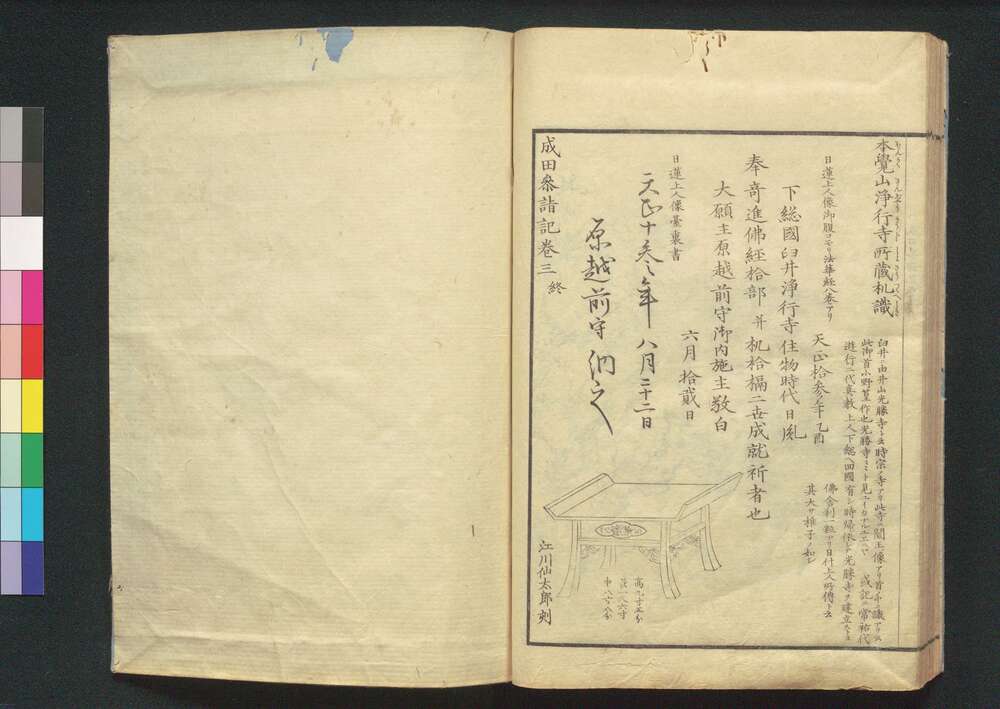 本覺山淨行寺所蔵机識
臼井ニ由井山光勝寺ト云時宗ノ寺アリ此寺ニ閻王像アリ首斗識アリ云
此御首小野篁作也光勝寺ミト見エ 或記ニ常祐代
遊行二代真教上人下総ヘ回國有シ時帰依シテ光勝寺ヲ建立
日蓮上人像御腹コモリ法華経八巻アリ
天正拾参年乙酉
佛舎利一粒アリ日什上人所傳ト云
其大サ椎子ノ如シ
下総國臼井淨行寺住物時代日胤
奉寄進佛經拾部并机拾楊二世成就祈者也
大願主原越前守御内施主敬白
六月拾貳日
日蓮上人像臺裏書
天正十参年八月二十二日
原越前守
成田参詣記巻三終
高九寸五分
長一尺六寸
巾八寸八分
江川仙太郎刻